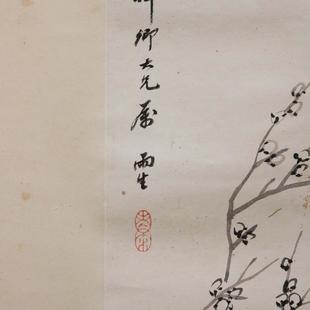 卿大兄属 雨生